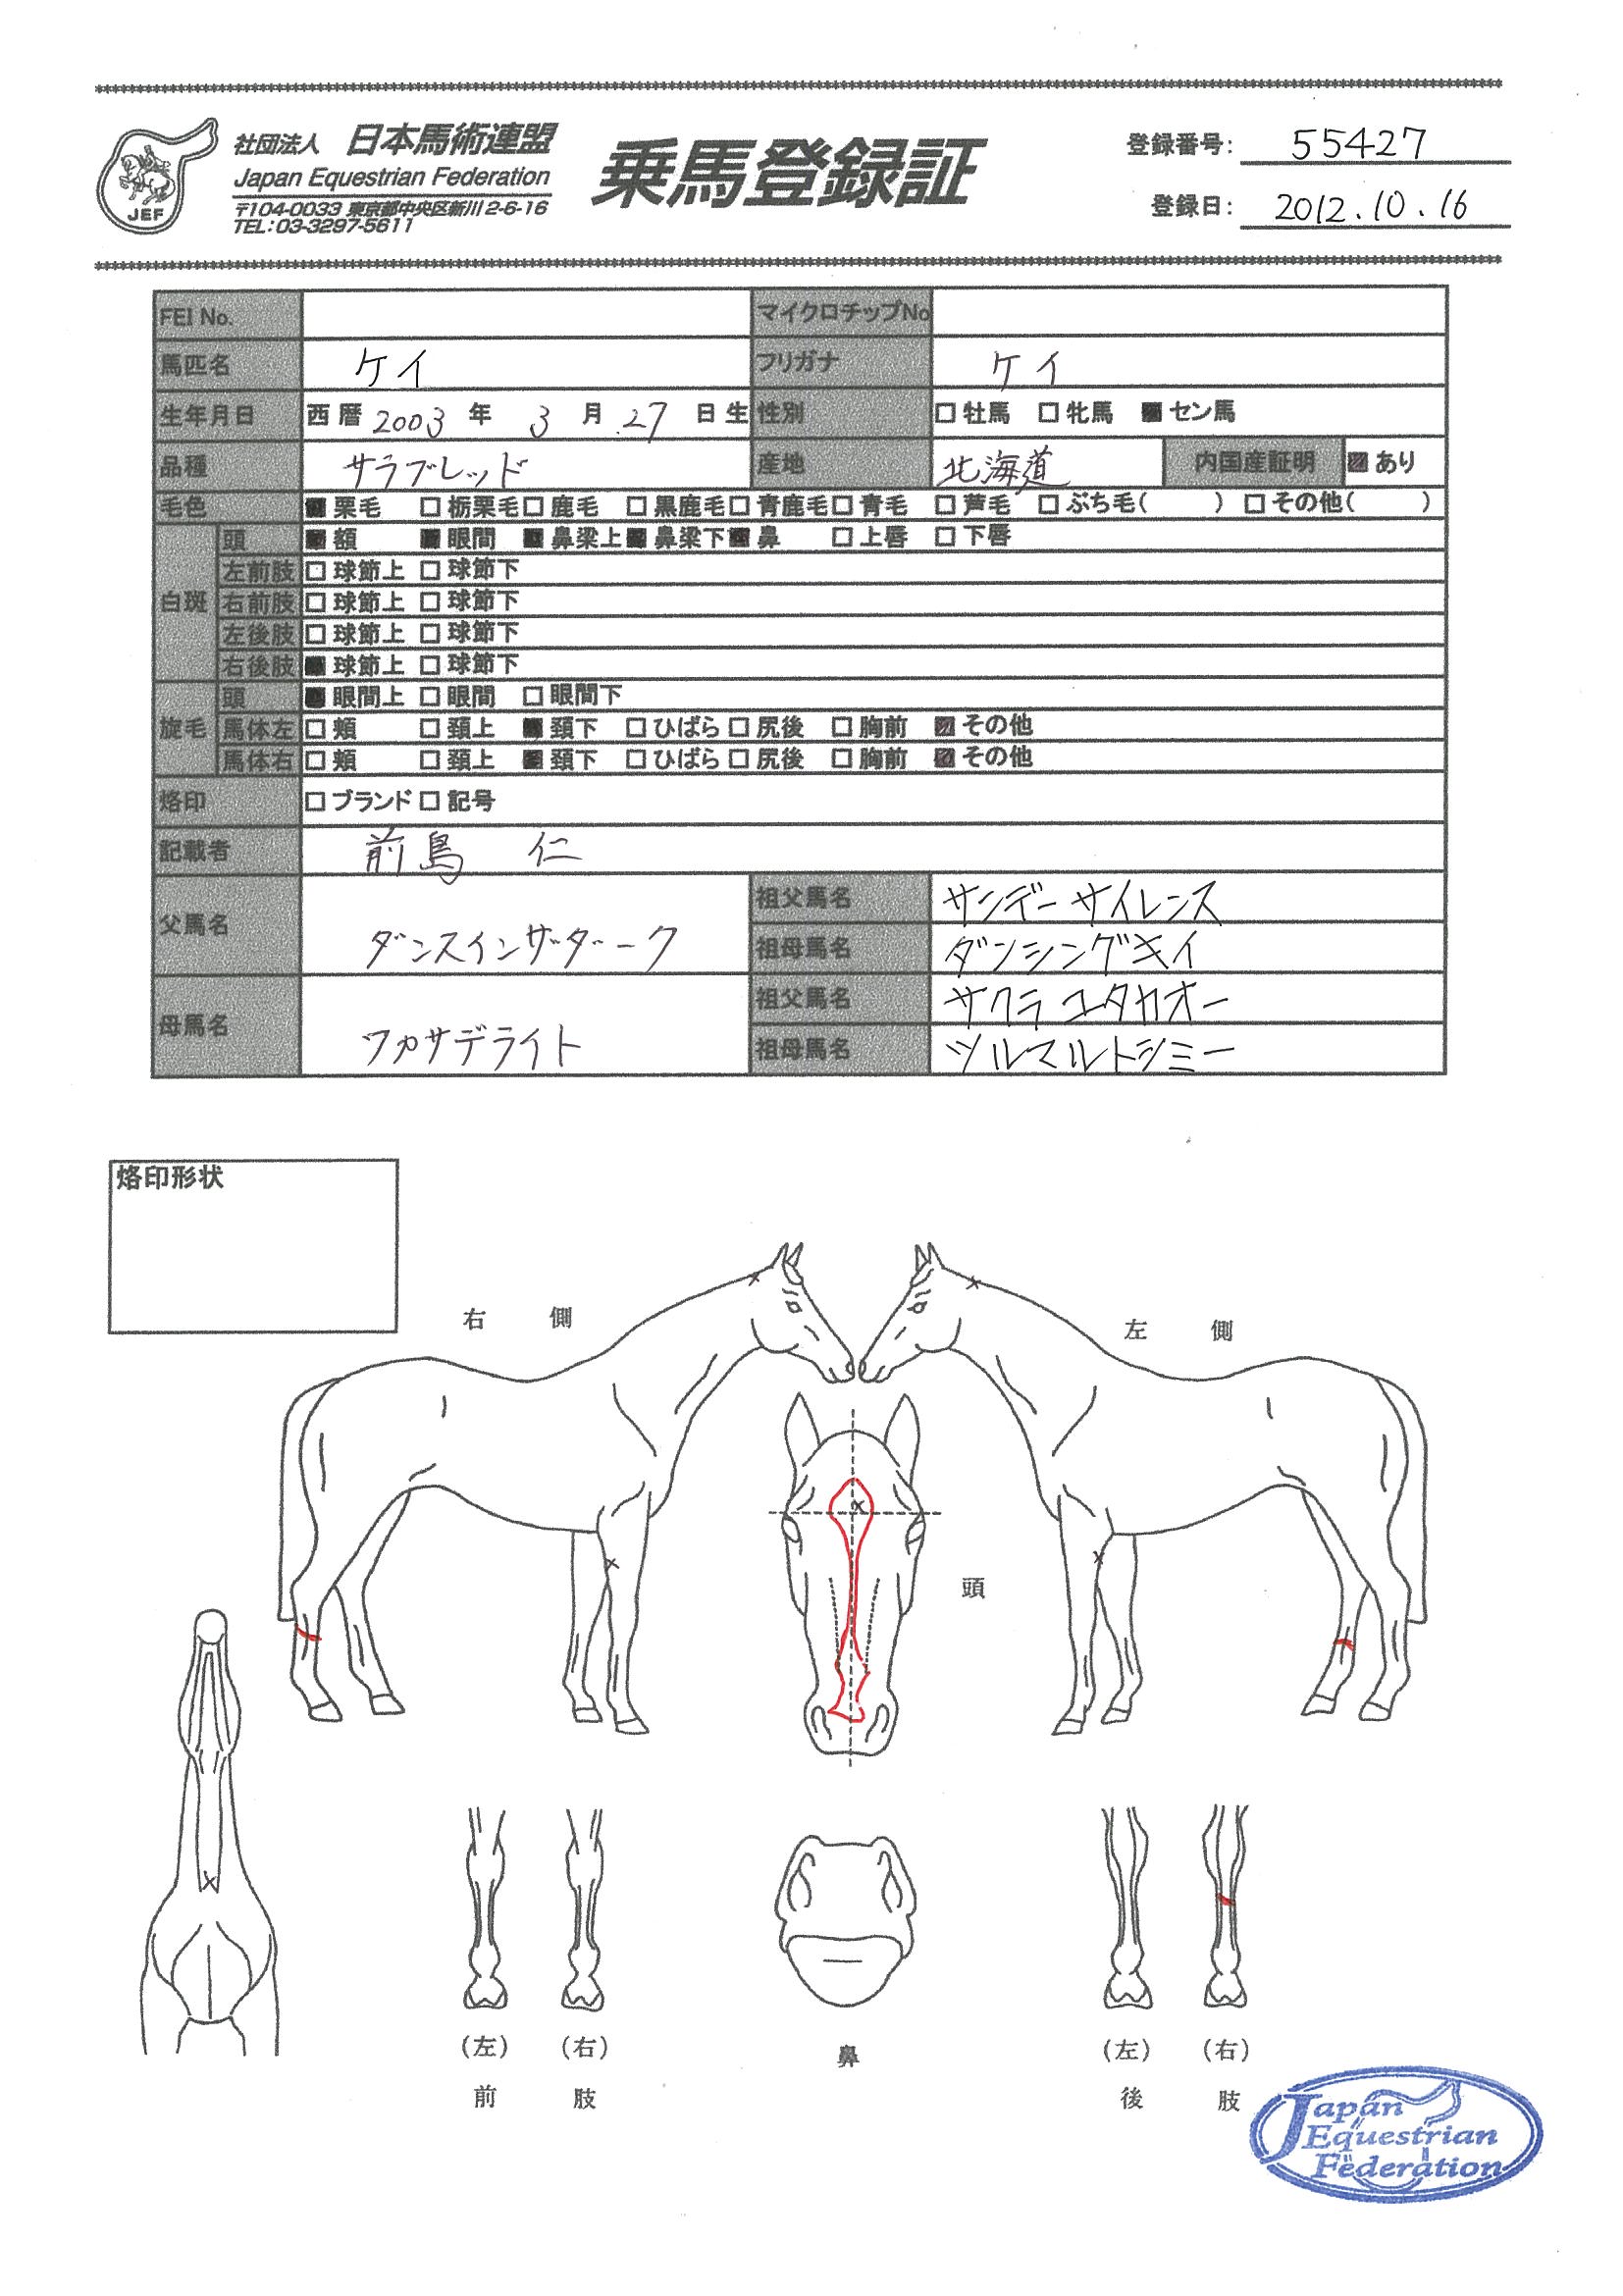 JEF
社団法人 日本馬術連盟
Japan Equestrian Federation
〒104-0033 東京都中央区新川2-6-16
TEL:03-3297-5611
乗馬登録証
登録番号: 55427
登録日: 2012.10.16
FEI No. マイクロチップNo
馬匹名 ケイ フリガナ ケイ
生年月日 西暦 2003 年 3 月 27 日生 性別 □ 牡馬 □ 牝馬 ■ セン馬
品種 サラブレッド 産地 北海道 内国産証明 ■ あり
毛色 ■ 栗毛 □ 栃栗毛 □ 鹿毛 □ 黒鹿毛 □ 青鹿毛 □ 青毛 □ 芦毛 □ ぶち毛( ) □ その他( )
白斑 頭 ■ 額 ■ 眼間 ■ 鼻梁上 ■ 鼻梁下 ■ 鼻 □ 上唇 □ 下唇
左前肢 □ 球節上 □ 球節下
右前肢 □ 球節上 □ 球節下
左後肢 □ 球節上 □ 球節下
右後肢 ■ 球節上 □ 球節下
旋毛 頭 ■ 眼間上 □ 眼間 □ 眼間下
馬体左 □ 頬 □ 頚上 ■ 頚下 □ ひばら □ 尻後 □ 胸前 ■ その他
馬体右 □ 頬 □ 頚上 ■ 頚下 □ ひばら □ 尻後 □ 胸前 ■ その他
烙印 □ ブランド □ 記号
記載者 前島 仁
父馬名 ダンスインザダーク 祖父馬名 サンデーサイレンス
祖母馬名 ダンシングキイ
母馬名 ワカサデライト 祖父馬名 サクラユタカオー
祖母馬名 ツルマルトシミー
烙印形状
右 側
左 側
頭
(左) (右)
前 肢
鼻
(左) (右)
後 肢
Japan
Equestrian
Federation